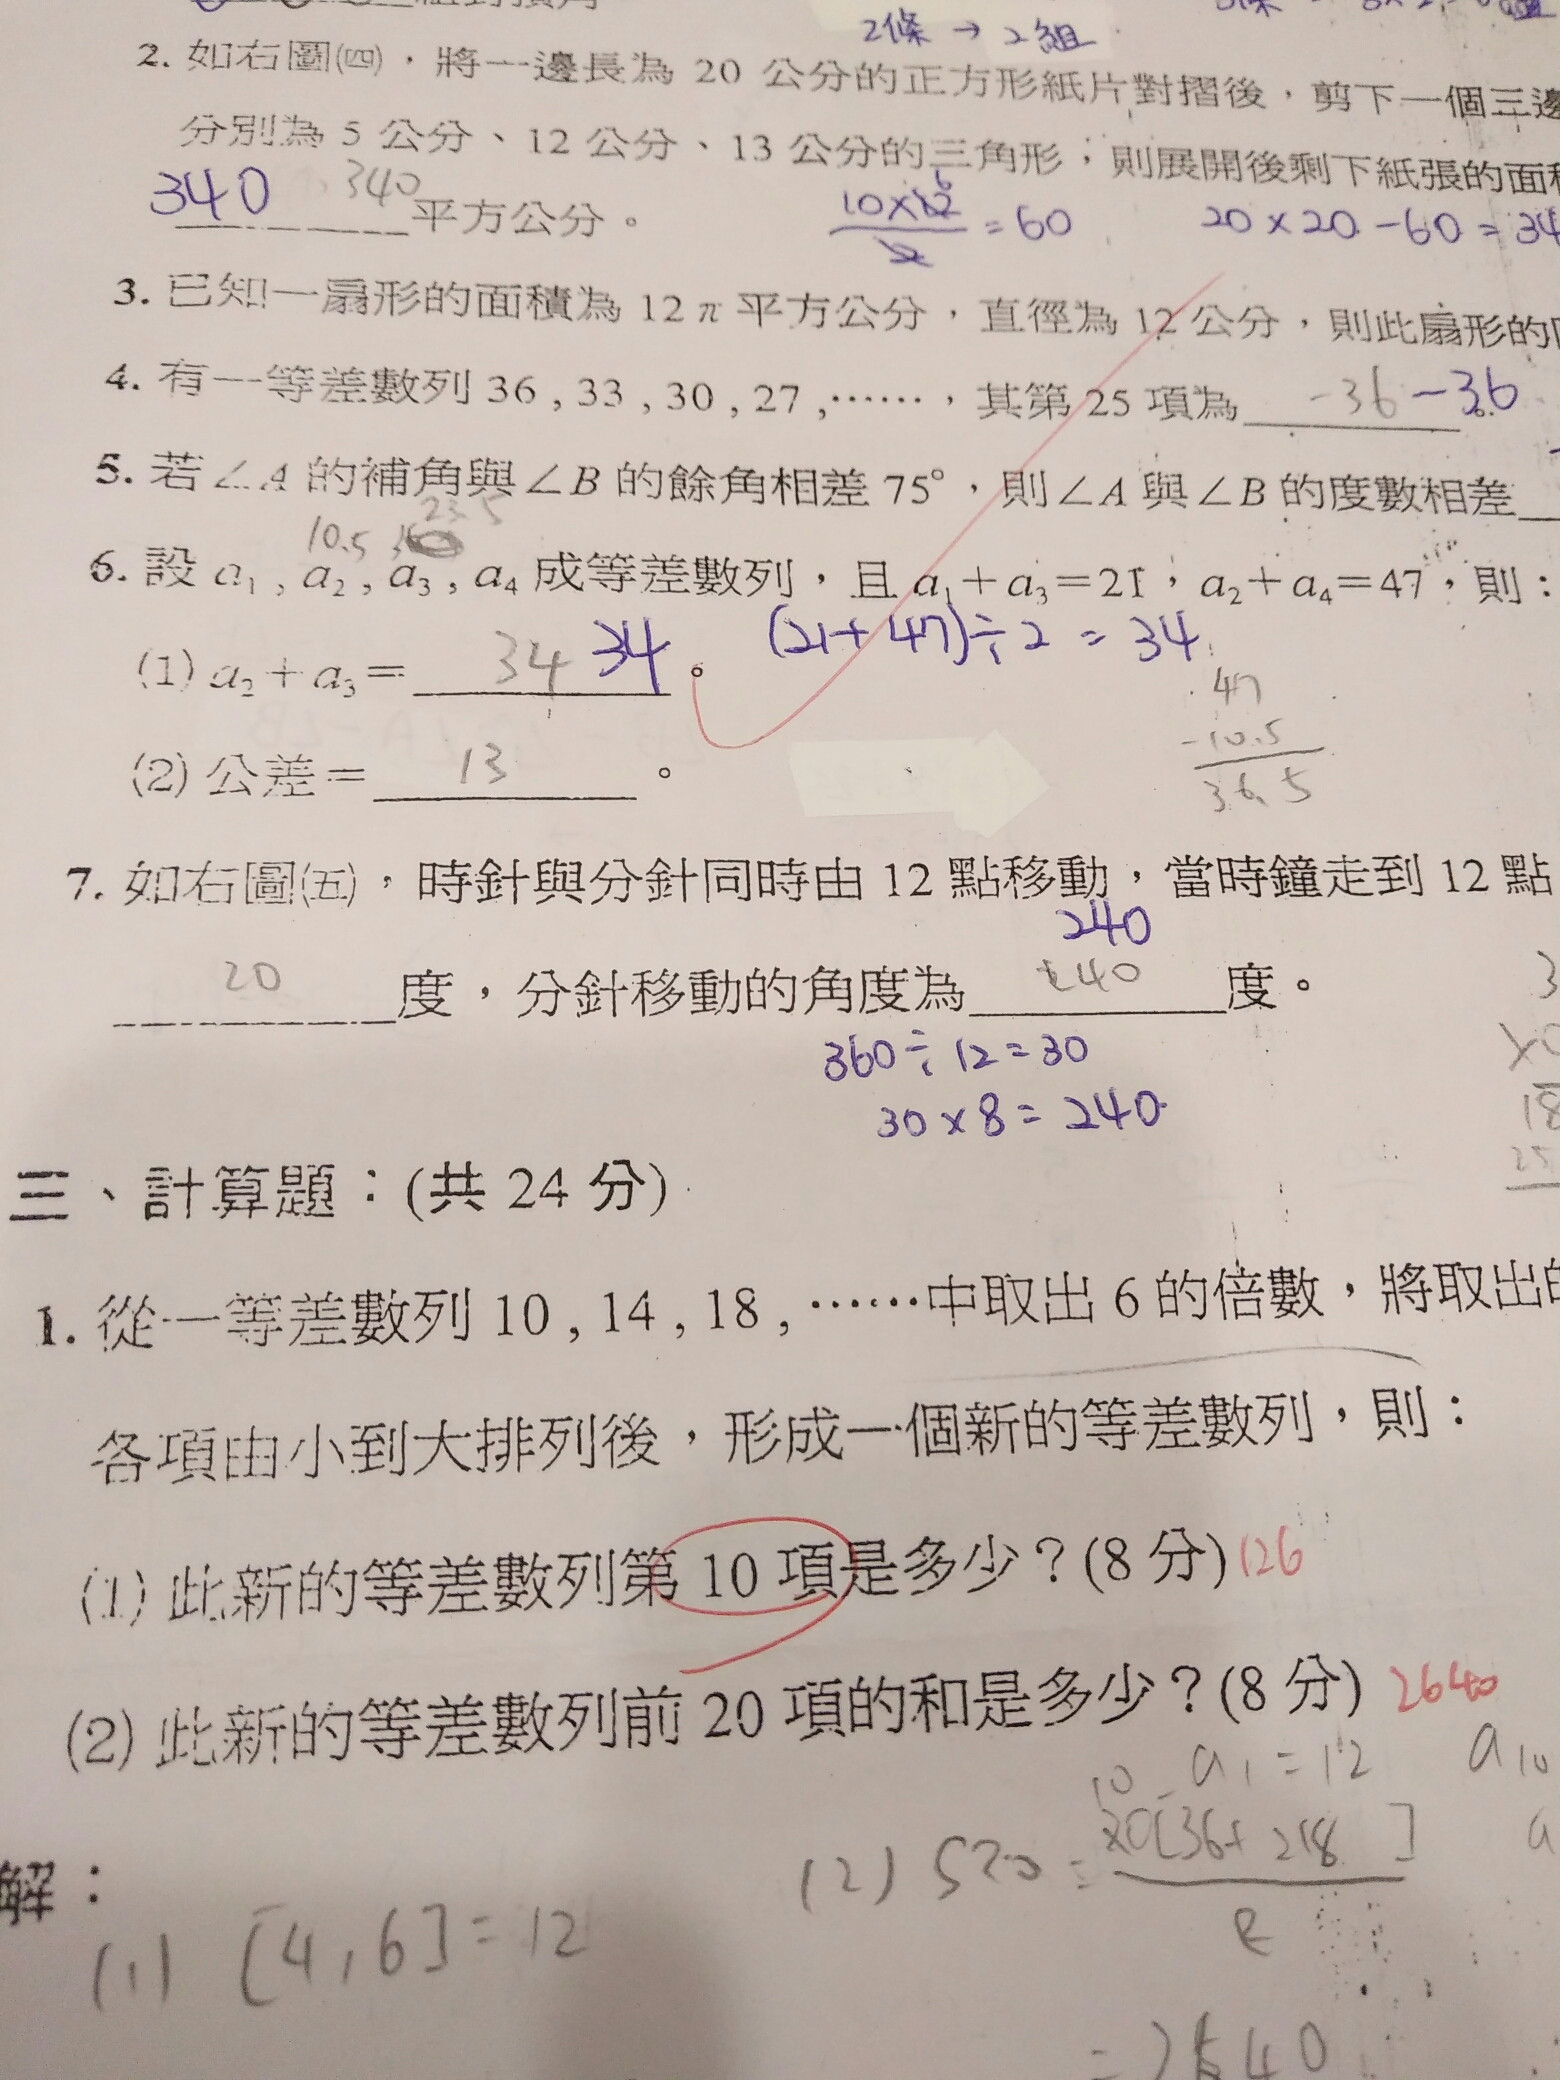 2條 → 2組
2. 如右圖(四)，將一邊長為 20 公分的正方形紙片對摺後，剪下一個三邊
分別為 5 公分、12 公分、13 公分的三角形，則展開後剩下紙張的面積
340 340 平方公分。
10×12/2 = 60 20×20-60=34
3. 已知一扇形的面積為 12π 平方公分，直徑為 12 公分，則此扇形的
4. 有一等差數列 36 , 33 , 30 , 27 ,……，其第 25 項為 -36 -36 。
5. 若∠A 的補角與∠B 的餘角相差 75°，則∠A 與∠B 的度數相差
10.5 23.5
6. 設 a₁ , a₂ , a₃ , a₄ 成等差數列，且 a₁＋a₃＝21，a₂＋a₄＝47，則：
(1) a₂＋a₃＝ 34 34 。 (21+47)÷2 = 34
47
-10.5
36.5
(2) 公差＝ 13 。
7. 如右圖(五)，時針與分針同時由 12 點移動，當時鐘走到 12 點
240
20 度，分針移動的角度為 240 度。
360÷12=30
30×8=240
三、計算題：(共 24 分)
1. 從一等差數列 10 , 14 , 18 , ……中取出 6 的倍數，將取出的
各項由小到大排列後，形成一個新的等差數列，則：
(1) 此新的等差數列第 10 項是多少？(8 分) 126
(2) 此新的等差數列前 20 項的和是多少？(8 分) 2640
a₁=12 a₁₀
解：
(1) [4,6]=12
(2) S20 = 20[36+218]/2
=2540